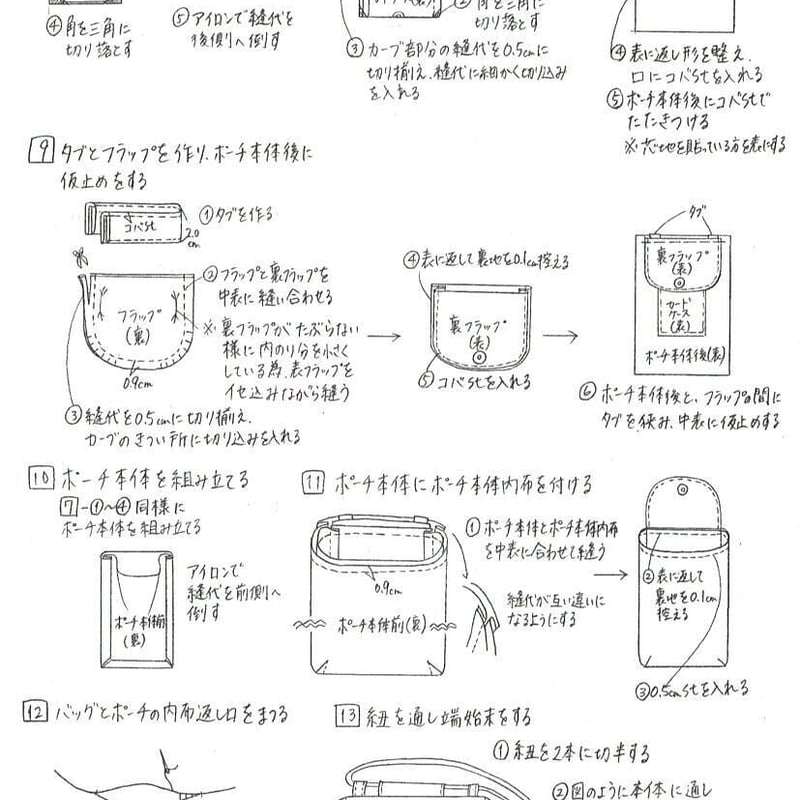 ④角を三角に
切り落とす
⑤アイロンで縫代を
後側へ倒す
②角を三角に
切り落とす
③カーブ部分の縫代を0.5cmに
切り揃え、縫代に細かく切り込み
を入れる
④表に返し形を整え、
口にコバstを入れる
⑤ポーチ本体後にコバstで
たたきつける
※芯地を貼っている方を表にする
9 タブとフラップを作り、ポーチ本体後に
仮止めをする
①タブを作る
コバst
2.0
cm
②フラップと裏フラップを
中表に縫い合わせる
※裏フラップがたぶらない
様に内のり分を小さく
している為、表フラップを
イセ込みながら縫う
フラップ
(裏)
0.9cm
③縫代を0.5cmに切り揃え、
カーブのきつい所に切り込みを入れる
④表に返して裏地を0.1cm控える
裏フラップ
(表)
⑤コバstを入れる
タブ
裏フラップ
(表)
カード
ケース
(表)
ポーチ本体後(表)
⑥ポーチ本体後と、フラップの間に
タブを挟み、中表に仮止めする
10 ポーチ本体を組み立てる
7-①〜④同様に
ポーチ本体を組み立てる
アイロンで
縫代を前側へ
倒す
ポーチ本体前
(裏)
11 ポーチ本体にポーチ本体内布を付ける
①ポーチ本体とポーチ本体内布
を中表に合わせて縫う
縫代が互い違いに
なるようにする
0.9cm
ポーチ本体前(裏)
②表に返して
裏地を0.1cm
控える
③0.5cmstを入れる
12 バッグとポーチの内布返し口をまつる
13 紐を通し端始末をする
①紐を2本に切半する
②図のように本体に通し